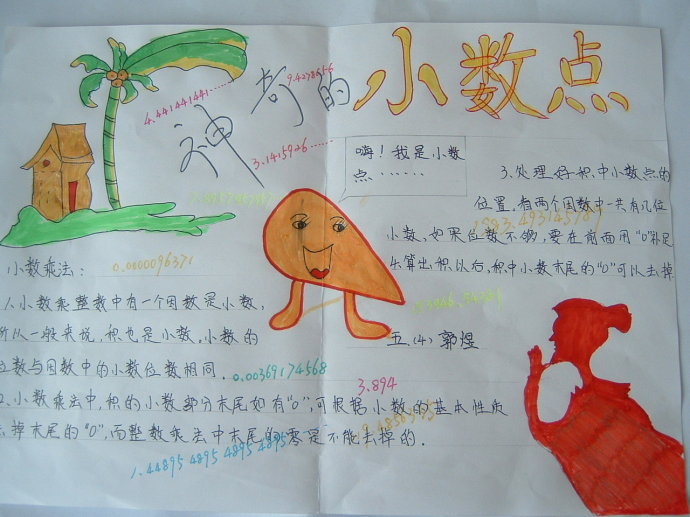 神奇的小数点
4.441441441……
9.4278616
3.1415926……
嗨！我是小数
点……
小数乘法：
0.0000096371
1、小数乘整数中有一个因数是小数，
所以一般来说，积也是小数。小数的
位数与因数中的小数位数相同。
0.00369174568
2、小数乘法中，积的小数部分末尾如有"0"，可根据小数的基本性质
去掉末尾的"0"，而整数乘法中末尾的零是不能去掉的．
1.44895 4895 4895 4895
3.894
3.处理好积中小数点的
位置．看两个因数中一共有几位
小数，如果位数不够，要在前面用"0"补足
4.算出积以后，积中小数末尾的"0"可以去掉
五．(4) 郭煜